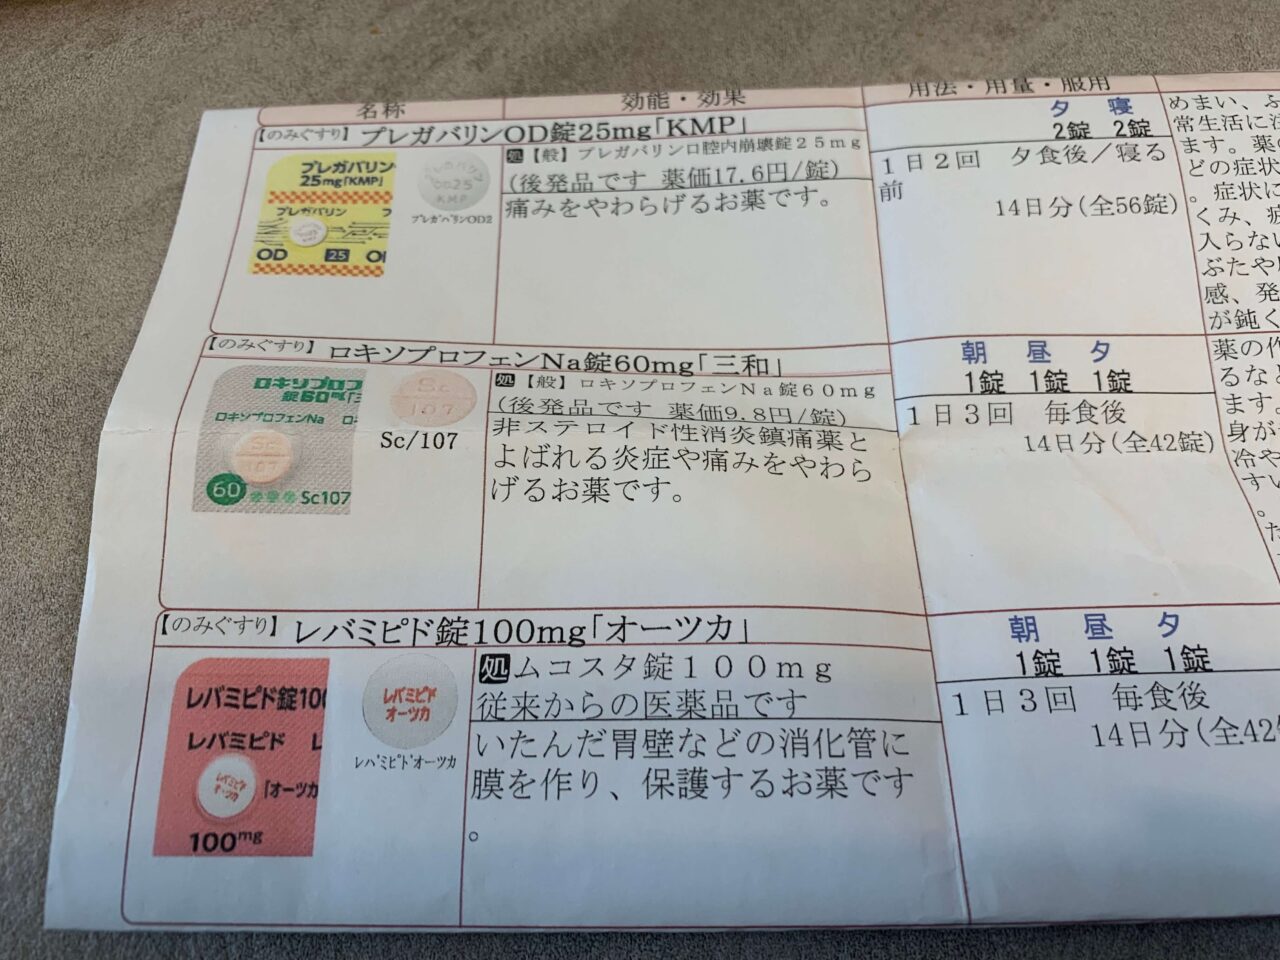 名称
効能・効果
用法・用量・服用
【のみぐすり】プレガバリンOD錠25mg「KMP」
プレガバリン
25mg「KMP」
プレガバリン
OD 25
プレガバリン
OD25
KMP
プレガバリンOD2
処【般】プレガバリン口腔内崩壊錠25mg
(後発品です 薬価17.6円/錠)
痛みをやわらげるお薬です。
夕 寝
2錠 2錠
1日2回 夕食後/寝る
前
14日分(全56錠)
めまい、ふ
常生活に注
ます。薬の
どの症状
。症状に
くみ、疲
入らない
ぶたや
感、発
が鈍く
【のみぐすり】ロキソプロフェンNa錠60mg「三和」
ロキソプロフ
錠60mg「三
ロキソプロフェンNa
Sc
107
60
Sc107
Sc
107
Sc/107
処【般】ロキソプロフェンNa錠60mg
(後発品です 薬価9.8円/錠)
非ステロイド性消炎鎮痛薬と
よばれる炎症や痛みをやわら
げるお薬です。
朝 昼 夕
1錠 1錠 1錠
1日3回 毎食後
14日分(全42錠)
薬の作
るなど
ます。
身が
冷や
すい
。
た
【のみぐすり】レバミピド錠100mg「オーツカ」
レバミピド錠100
レバミピド レ
レバミピド
オーツカ
「オーツカ
100mg
レバミピド
オーツカ
レバミピド「オーツカ
処ムコスタ錠100mg
従来からの医薬品です
いたんだ胃壁などの消化管に
膜を作り、保護するお薬です
。
朝 昼 夕
1錠 1錠 1錠
1日3回 毎食後
14日分(全42